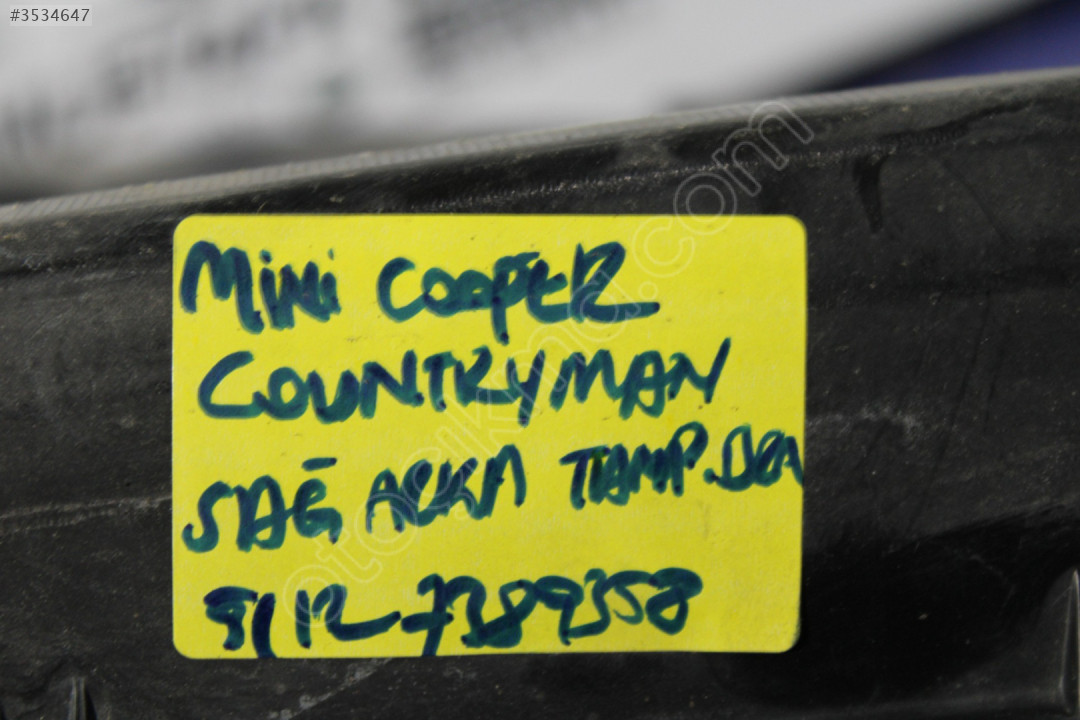 #3534647
MiNi COOPER
COUNTRYMAN
SAĞ ARKA TAMP.
51127389358
otocikma.com